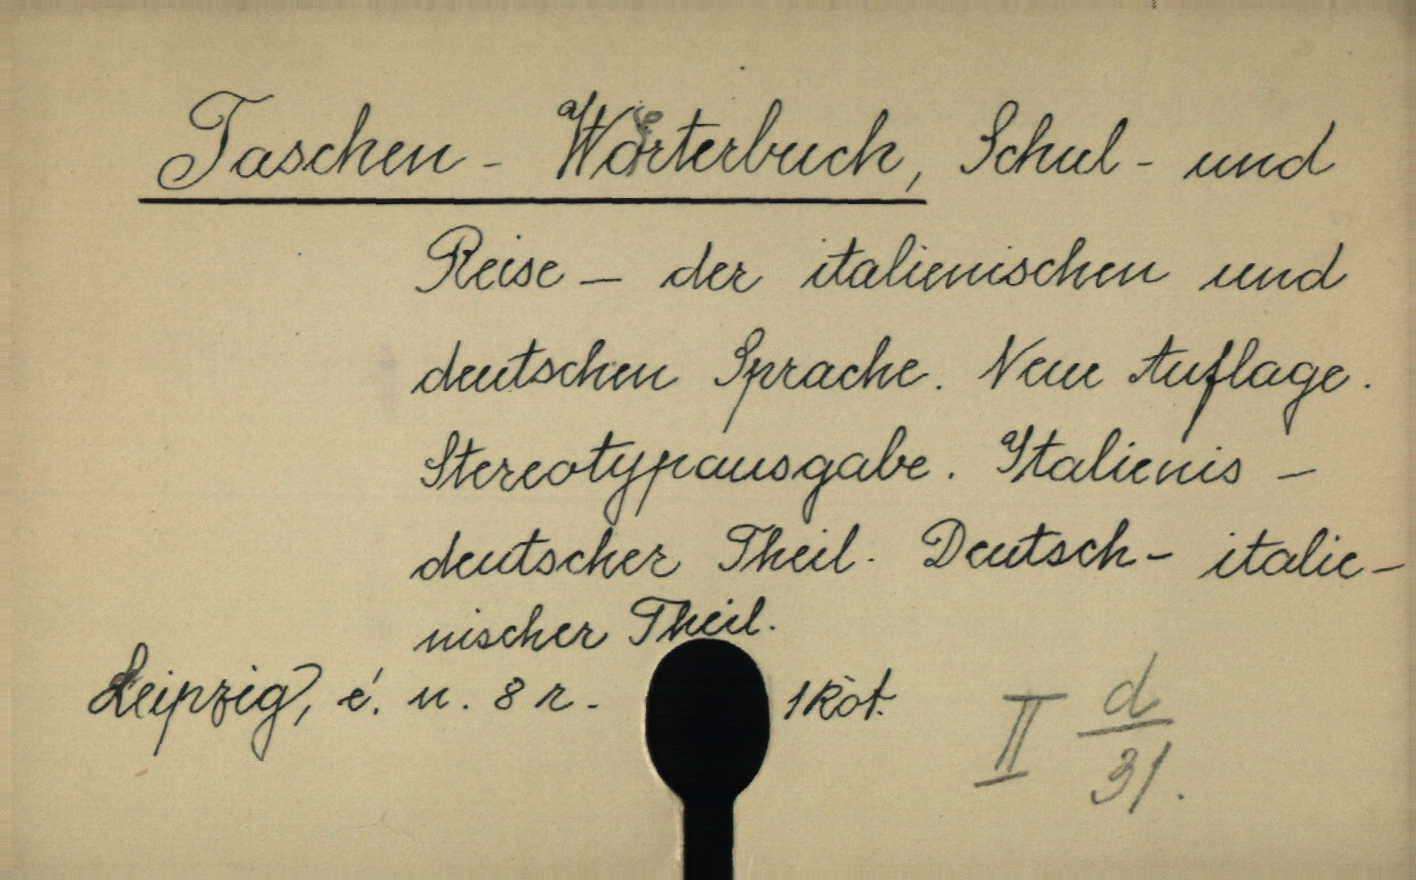 Taschen - Wörterbuch, Schul - und
Reise - der italienischen und
deutschen Sprache. Neue Auflage.
Stereotypausgabe. Italienis -
deutscher Theil. Deutsch - italie-
nischer Theil.
Leipzig, é. n. 8 r. 1 köt.
II d/31.